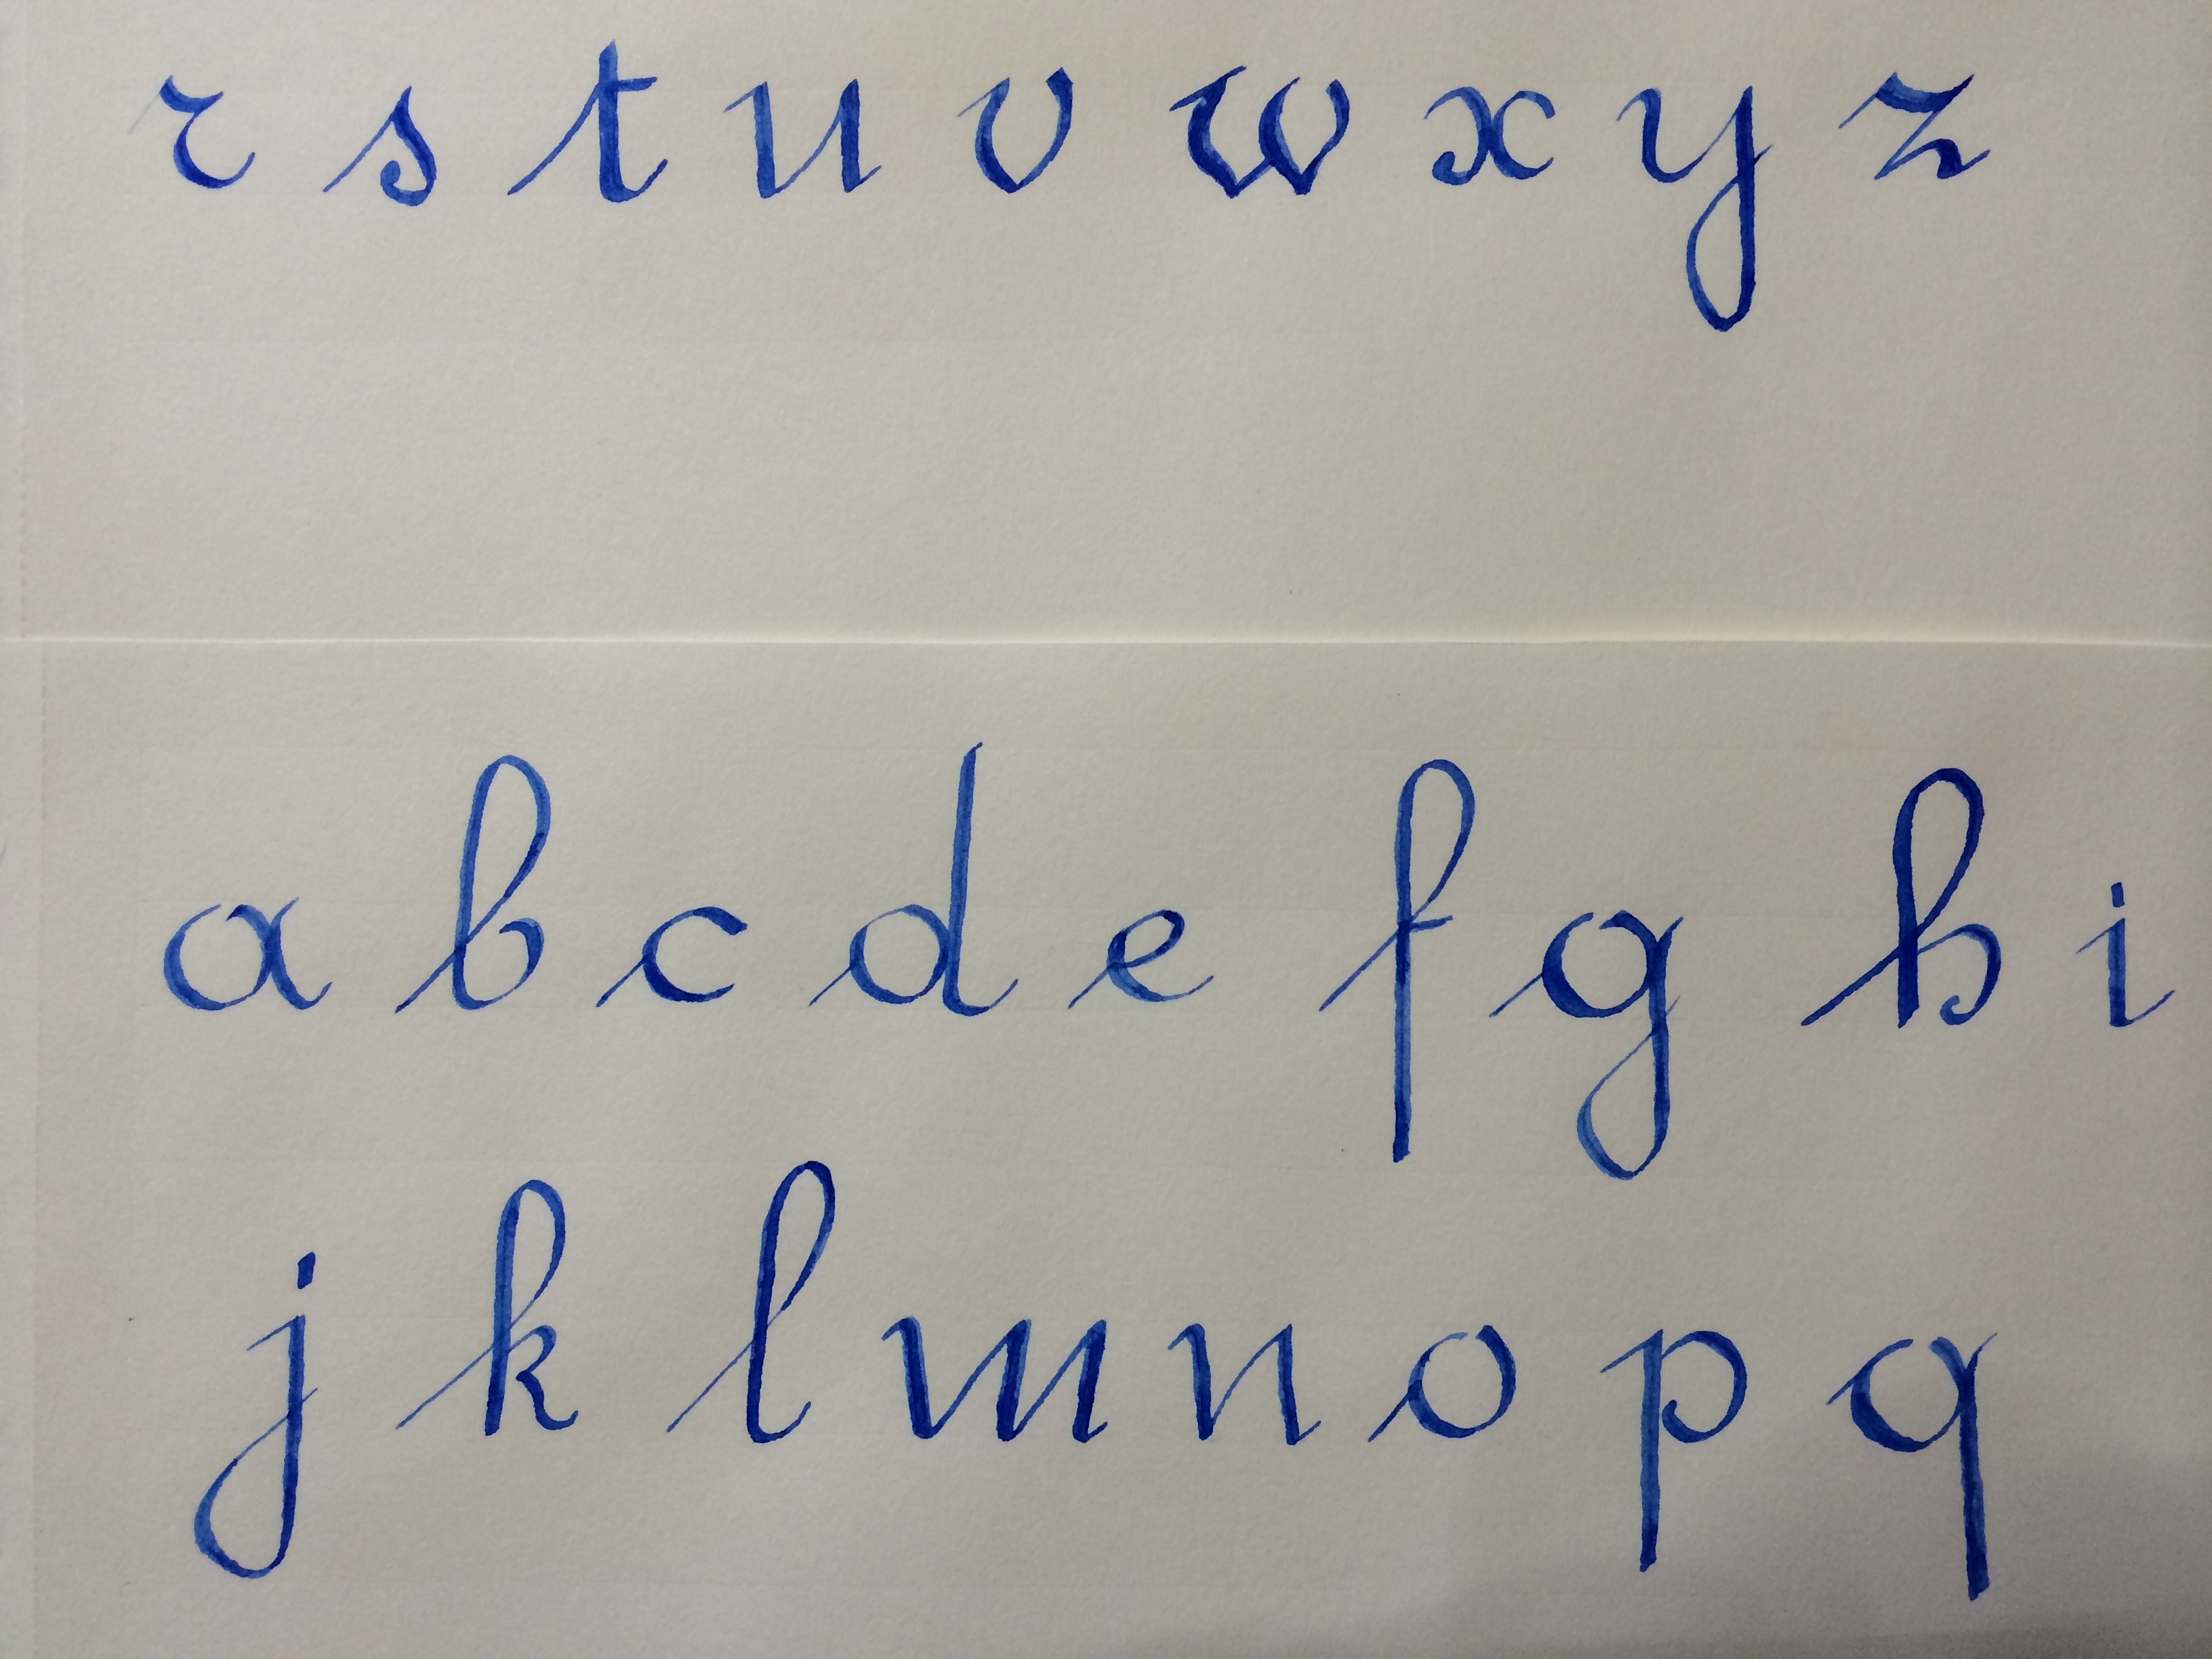 r s t u v w x y z
a b c d e f g h i
j k l m n o p q